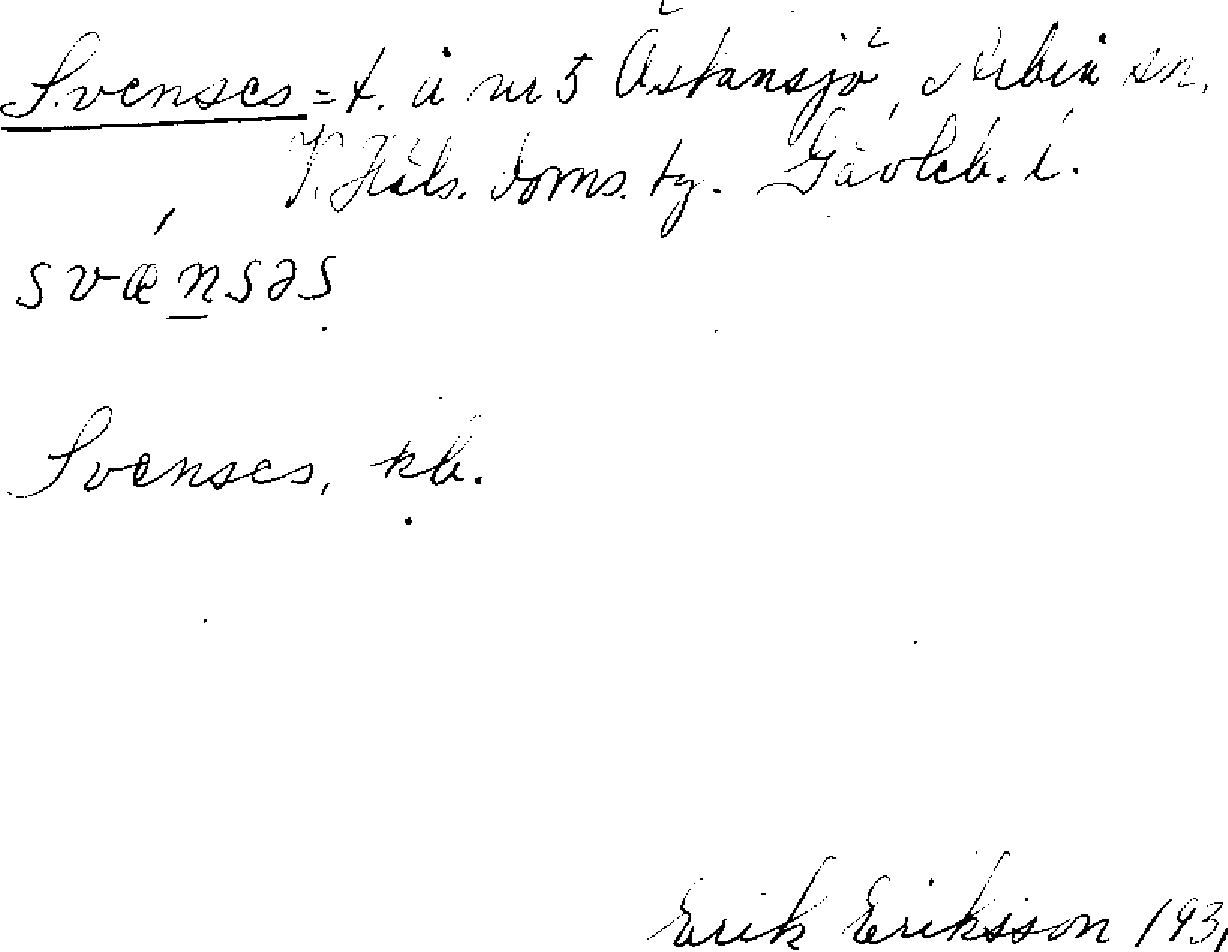 Svenses = t. å nr 5 Östansjö, Arbrå sn,
V. Häls. doms. tg. Gävleb. l.
svænsəs
Svenses, kb.
Erik Eriksson 193